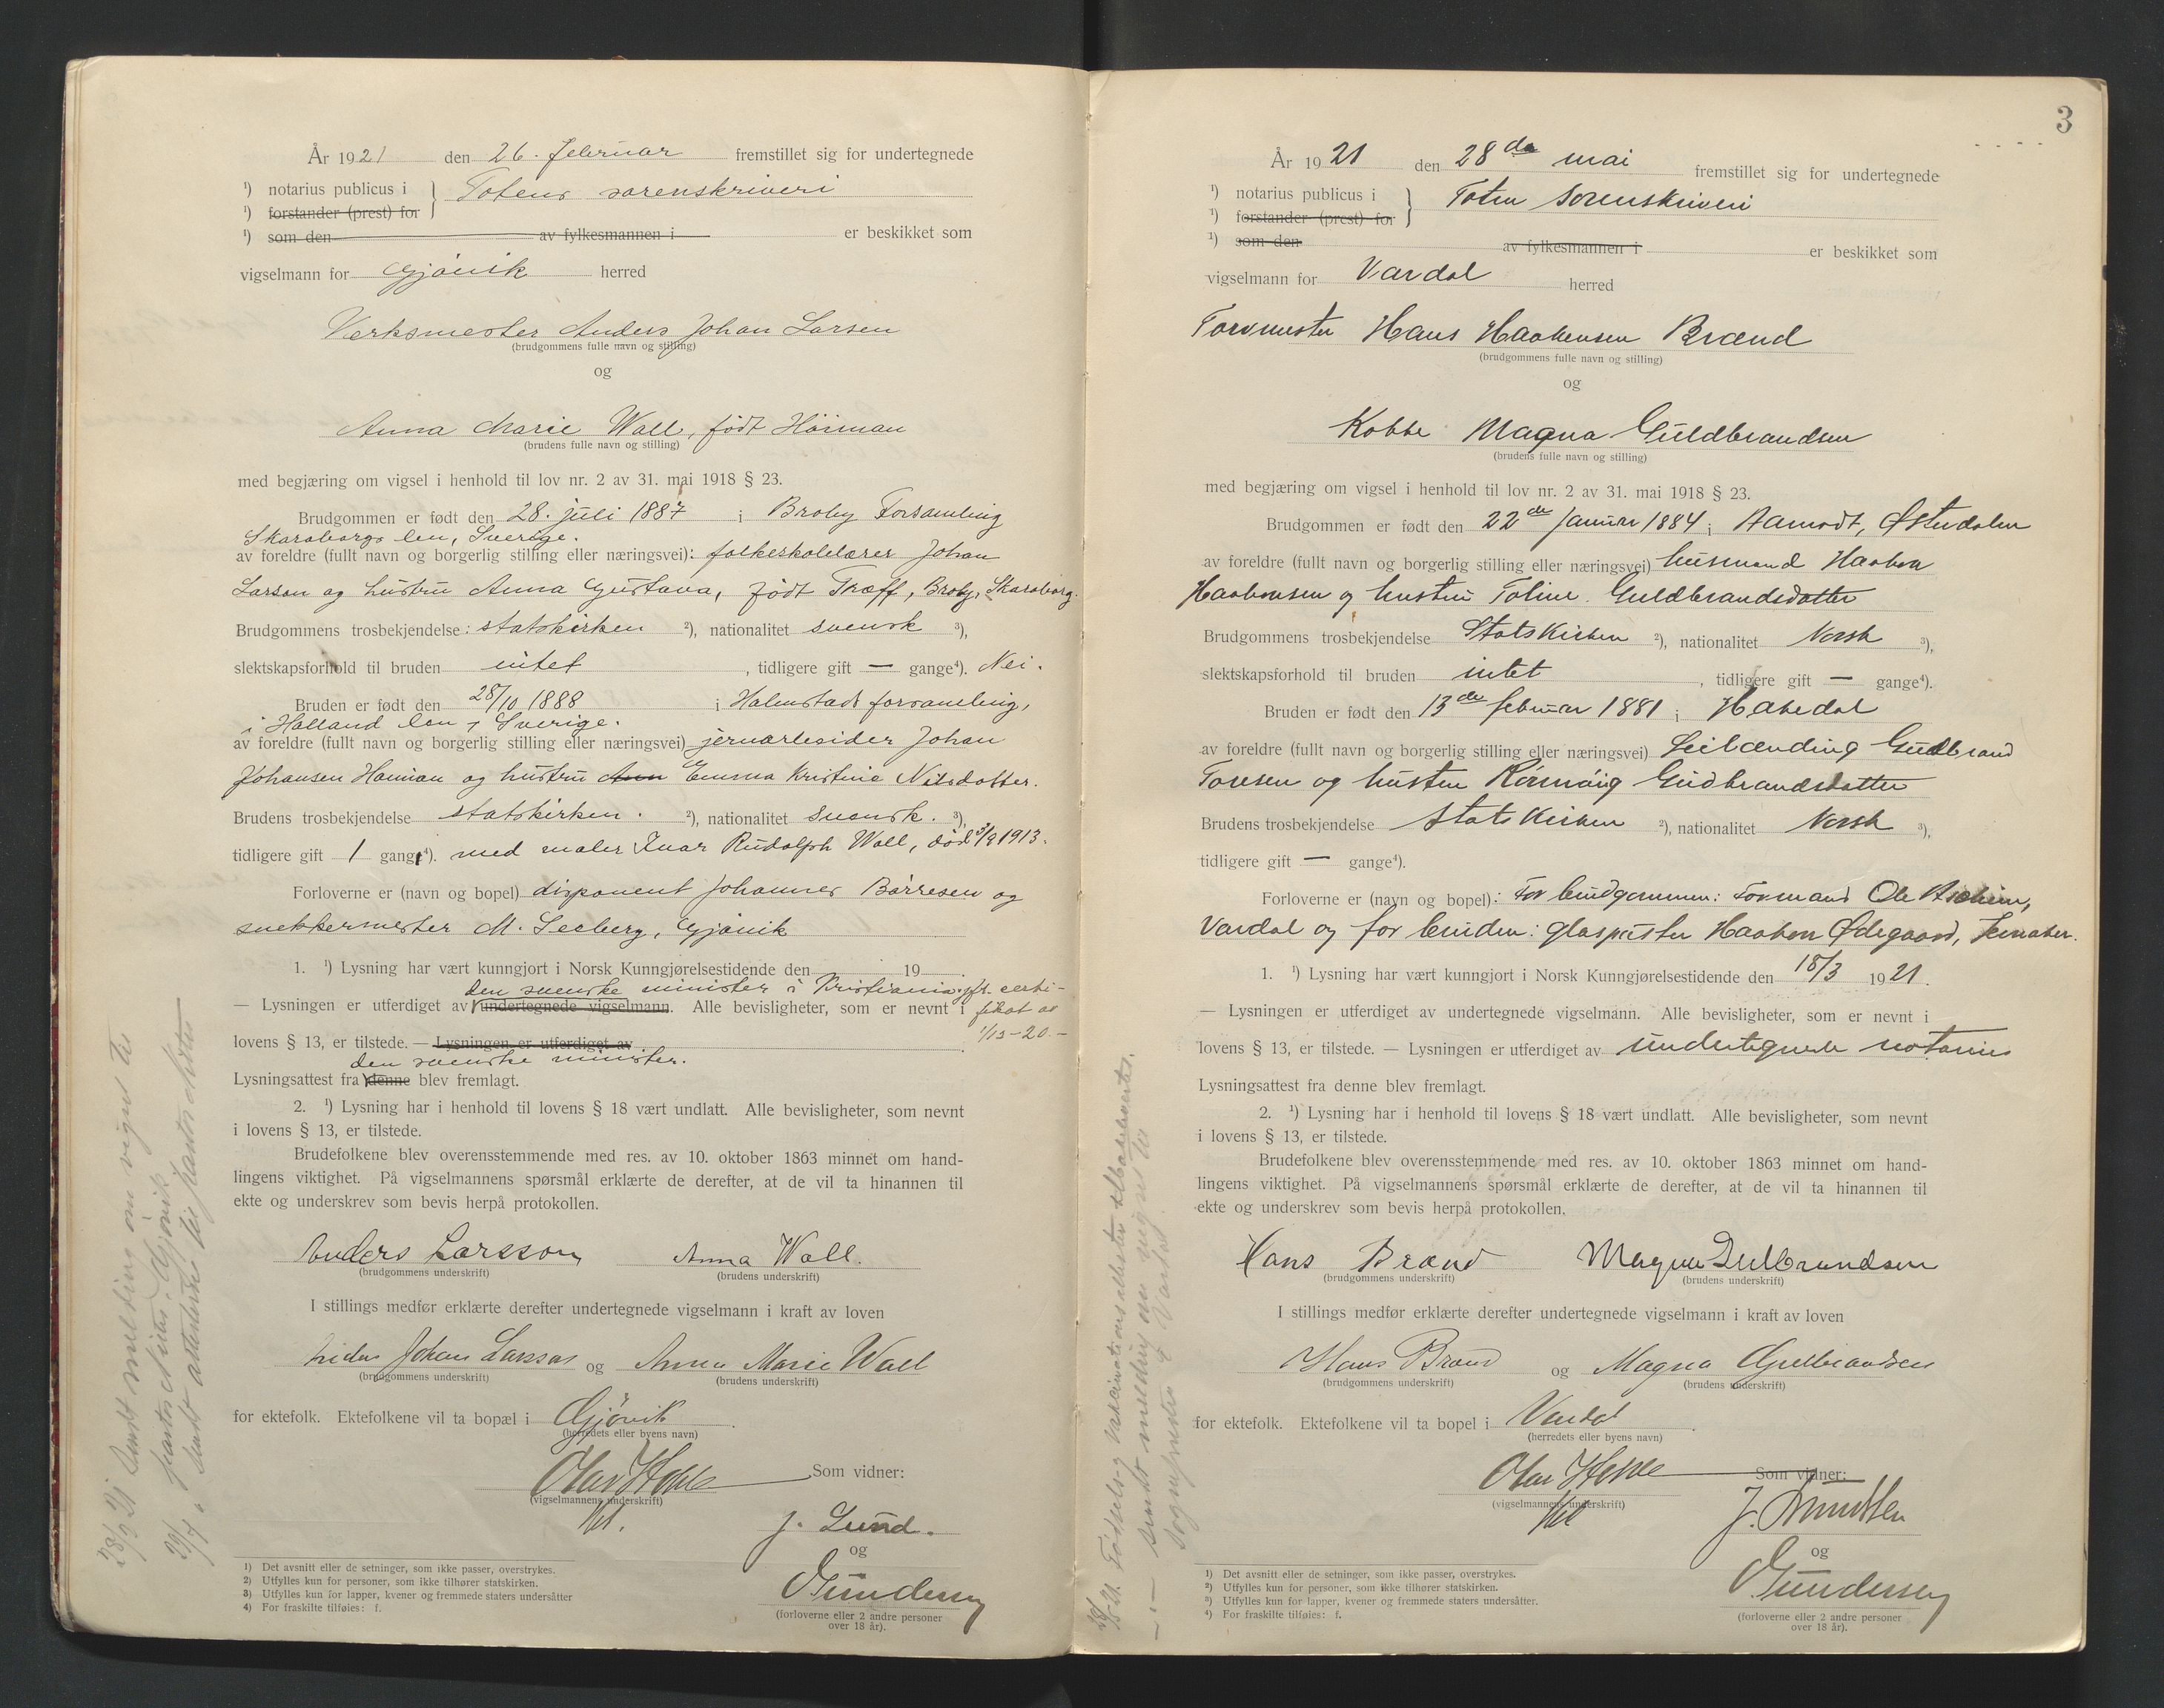 År 1921 den 26. februar fremstillet sig for undertegnede
¹) notarius publicus i } Totens sorenskriveri
¹) forstander (prest) for
¹) som den av fylkesmannen i er beskikket som
vigselmann for Gjövik herred
Verksmester Anders Johan Larsen
(brudgommens fulle navn og stilling)
og
Anna Marie Wall, født Hörman
(brudens fulle navn og stilling)
med begjæring om vigsel i henhold til lov nr. 2 av 31. mai 1918 § 23.
Brudgommen er født den 28. juli 1887 i Broby Forsamling
Skaraborgs len, Sverige.
av foreldre (fullt navn og borgerlig stilling eller næringsvei): folkeskolelærer Johan
Larson og hustru Anna Gustava, født Træff, Broby, Skaraborg.
Brudgommens trosbekjendelse: statskirken ²), nationalitet svensk ³),
slektskapsforhold til bruden intet , tidligere gift — gange⁴). Nei.
Bruden er født den 28/10 1888 i Halmstads forsamling,
i Halland len, Sverige.
av foreldre (fullt navn og borgerlig stilling eller næringsvei) jernarbeider Johan
Johansen Herman og hustru Ann Emma Kristine Nilsdotter.
Brudens trosbekjendelse statskirken. ²), nationalitet svensk. ³),
tidligere gift 1 gang⁴). med maler Ivar Rudolph Wall, död 3/9 1913.
Forloverne er (navn og bopel) disponent Johannes Börresen og
snekkermester M. Seeberg, Gjövik
1. ¹) Lysning har vært kunngjort i Norsk Kunngjørelsestidende den 19 .
den svenske minister i Kristiania jfr. certi-
— Lysningen er utferdiget av undertegnede vigselmann. Alle bevisligheter, som er nevnt i fikat av
1/12-20.-
lovens § 13, er tilstede. — Lysningen er utferdiget av
den svenske minister.
Lysningsattest fra denne blev fremlagt.
2. ¹) Lysning har i henhold til lovens § 18 vært undlatt. Alle bevisligheter, som nevnt
i lovens § 13, er tilstede.
Brudefolkene blev overensstemmende med res. av 10. oktober 1863 minnet om hand-
lingens viktighet. På vigselmannens spørsmål erklærte de derefter, at de vil ta hinannen til
ekte og underskrev som bevis herpå protokollen.
Anders Larsson Anna Wall.
(brudgommens underskrift) (brudens underskrift)
I stillings medfør erklærte derefter undertegnede vigselmann i kraft av loven
Anders Johan Larsson og Anna Marie Wall
(brudgommens underskrift) (brudens underskrift)
for ektefolk. Ektefolkene vil ta bopæl i Gjövik .
(herredets eller byens navn)
Som vidner:
(vigselmannens underskrift)
J. Lund.
og
Gundersen
(forloverne eller 2 andre personer
over 18 år).
¹) Det avsnitt eller de setninger, som ikke passer, overstrykes.
²) Utfylles kun for personer, som ikke tilhører statskirken.
³) Utfylles kun for lapper, kvener og fremmede staters undersåtter
⁴) For fraskilte tilføies: f.
28/2 21 Sendt melding om vigsel til
3
År 1921 den 28de mai fremstillet sig for undertegnede
¹) notarius publicus i } Toten sorenskriveri
¹) forstander (prest) for
¹) som den av fylkesmannen i er beskikket som
vigselmann for Vardal herred
Torvmester Hans Haakensen Brænd
(brudgommens fulle navn og stilling)
og
Kokke Magna Guldbrandsen
(brudens fulle navn og stilling)
med begjæring om vigsel i henhold til lov nr. 2 av 31. mai 1918 § 23.
Brudgommen er født den 22de januar 1884 i Aamodt, Østerdalen
av foreldre (fullt navn og borgerlig stilling eller næringsvei) husmand Haakon
Haakonsen og hustru Toline Guldbrandsdatter
Brudgommens trosbekjendelse Statskirken ²), nationalitet Norsk ³),
slektskapsforhold til bruden intet , tidligere gift — gange⁴).
Bruden er født den 13de februar 1881 i Hakedal
av foreldre (fullt navn og borgerlig stilling eller næringsvei) Leilænding Gudbrand
Toresen og hustru Rönnaug Gudbrandsdatter
Brudens trosbekjendelse Statskirken ²), nationalitet Norsk ³),
tidligere gift — gange⁴).
Forloverne er (navn og bopel): For brudgommen: formand Ole Ascheim,
Vardal og for bruden: glaspuster Haakon Ødegaard, Jevnaker.
1. ¹) Lysning har vært kunngjort i Norsk Kunngjørelsestidende den 18/3 1921.
— Lysningen er utferdiget av undertegnede vigselmann. Alle bevisligheter, som er nevnt i
lovens § 13, er tilstede. — Lysningen er utferdiget av undertegnede notarius
Lysningsattest fra denne blev fremlagt.
2. ¹) Lysning har i henhold til lovens § 18 vært undlatt. Alle bevisligheter, som nevnt
i lovens § 13, er tilstede.
Brudefolkene blev overensstemmende med res. av 10. oktober 1863 minnet om hand-
lingens viktighet. På vigselmannens spørsmål erklærte de derefter, at de vil ta hinannen til
ekte og underskrev som bevis herpå protokollen.
Hans Brænd Magna Gulbrandsen
(brudgommens underskrift) (brudens underskrift)
I stillings medfør erklærte derefter undertegnede vigselmann i kraft av loven
Hans Brænd og Magna Gulbrandsen
(brudgommens underskrift) (brudens underskrift)
for ektefolk. Ektefolkene vil ta bopel i Vardal .
(herredets eller byens navn)
Som vidner:
(vigselmannens underskrift)
J. Knudsen
og
Gundersen
(forloverne eller 2 andre personer
over 18 år).
¹) Det avsnitt eller de setninger, som ikke passer, overstrykes.
²) Utfylles kun for personer, som ikke tilhører statskirken.
³) Utfylles kun for lapper, kvener og fremmede staters undersåtter.
⁴) For fraskilte tilføies: f.
sendt melding om vigsel til
sognepresten i Vardal